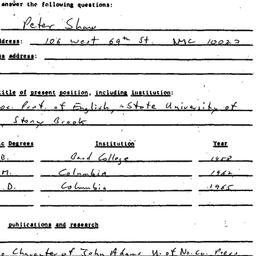 answer the following questions:
Peter Shaw
ddress: 106 West 69th St. NYC 10023
s address:
title of present position, including institution:
oc. Prof. of English, State University of
Stony Brook
c Degrees Institution Year
B. Bard College 1958
M. Columbia 1962
D. Columbia 1965
publications and research
Character of John Adams U. of No. Ca. Press